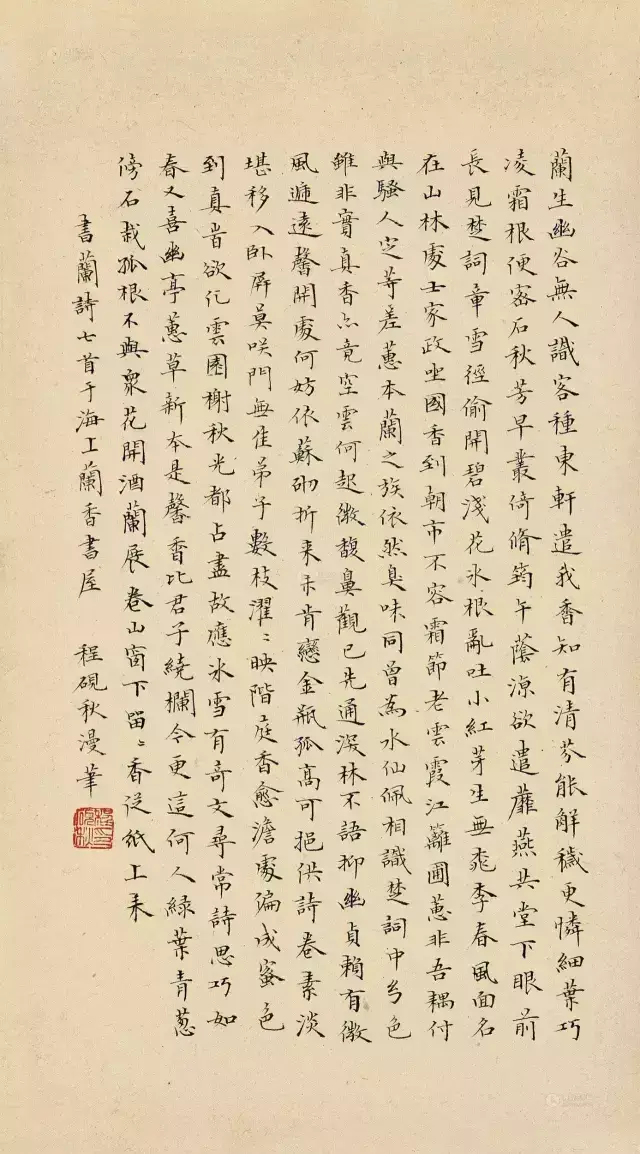 蘭生幽谷無人識客種東軒遣我香知有清芬能解穢更憐細葉巧
凌霜根便密石秋芳早叢倚脩筠午蔭涼欲遣蘼蕪共堂下眼前
長見楚詞章雪徑偷開碧淺花氷根亂吐小紅芽生無桃李春風面名
在山林處士家政坐國香到朝市不容霜節老雲霞江籬圃蕙非吾耦付
與騷人定等差蕙本蘭之族依然臭味同曾為水仙佩相識楚詞中幻色
雖非實真香亦竟空雲何起微馥鼻觀已先通深林不語抑幽貞賴有微
風遞遠馨開處何妨依蘚砌折来未肯戀金瓶孤高可挹供詩卷素淡
堪移入卧屏莫咲門無佳弟子數枝濯〻映階庭香愈澹處偏成蜜色
到真旹欲化雲園榭秋光都占盡故應氷雪有奇文尋常詩思巧如
春又喜幽亭蕙草新本是馨香比君子繞欄今更這何人緑葉青葱
傍石栽孤根不與衆花開酒蘭展卷山窗下畱〻香從紙上来
書蘭詩七首于海上蘭香書屋 程硯秋漫筆